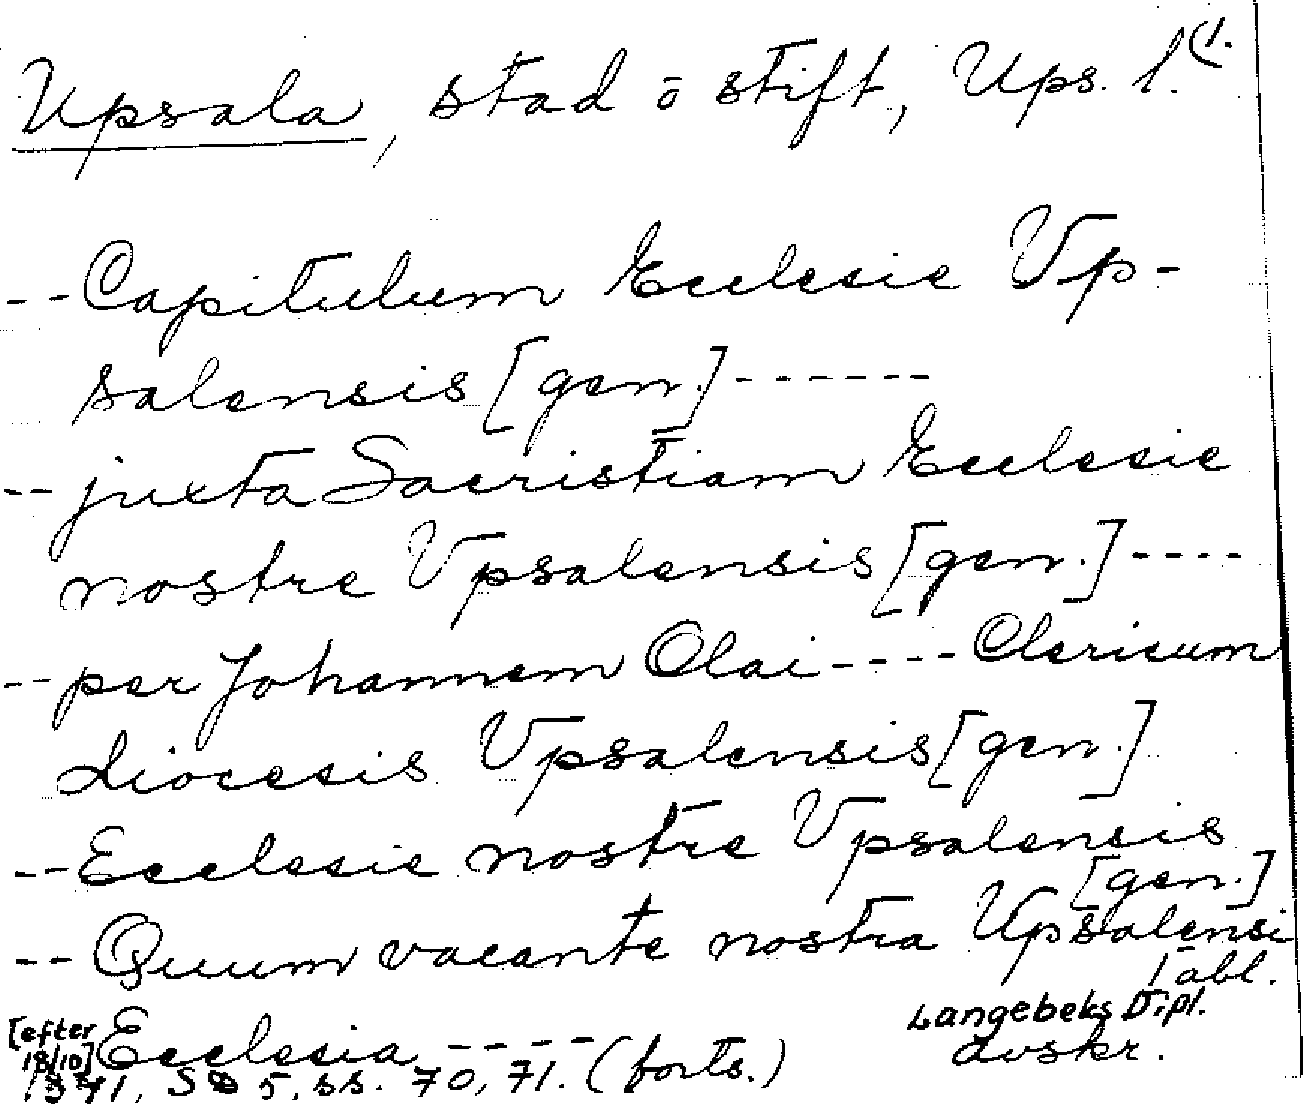 Upsala, stad o stift, Ups. l. (1.
-- Capitulum Ecclesie Vp-
salensis [gen.] ------
-- juxta Sacristiam Ecclesie
nostre Vpsalensis [gen.] ----
-- per Johannem Olai ---- Clericum
diocesis Vpsalensis [gen.]
-- Ecclesie nostre Vpsalensis
[gen.]
-- Quum vacante nostra Upsalensi
[abl.
[efter
18/10] Ecclesia -----
Langebeks Dipl.
avskr.
1341, SD 5, ss. 70, 71. (forts.)